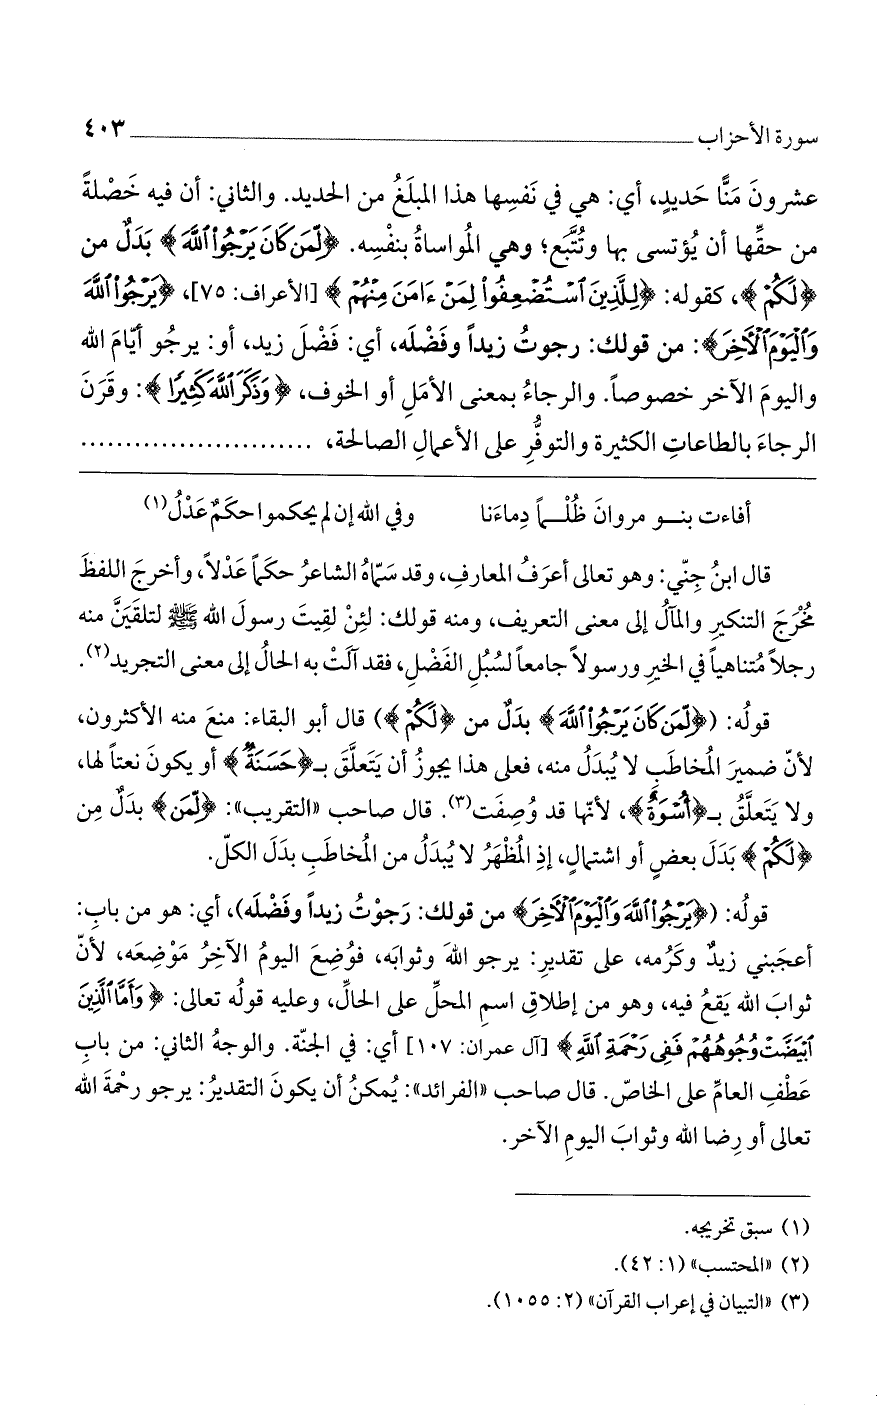 سورة الأحزاب ٤٠٣
عشرونَ مَنًّا حَديدٍ، أي: هي في نَفسِها هذا المبلَغُ من الحديد. والثاني: أن فيه خَصْلةً
من حقِّها أن يُؤتسى بها وتُتَّبَع؛ وهي المُواساةُ بنفْسِه. ﴿لِّمَن كَانَ يَرْجُواْ ٱللَّهَ﴾ بَدَلٌ من
﴿لَكُمْ﴾، كقوله: ﴿لِلَّذِينَ ٱسْتُضْعِفُواْ لِمَنْ ءَامَنَ مِنْهُمْ﴾ [الأعراف: ٧٥]، ﴿يَرْجُواْ ٱللَّهَ
وَٱلْيَوْمَ ٱلْأَخِرَ﴾: من قولك: رجوتُ زيداً وفضْلَه، أي: فَضْلَ زيد، أو: يرجُو أيّامَ الله
واليومَ الآخر خصوصاً. والرجاءُ بمعنى الأمَلِ أو الخوف، ﴿وَذَكَرَ ٱللَّهَ كَثِيرًا﴾: وقَرَنَ
الرجاءَ بالطاعاتِ الكثيرة والتوفُّرِ على الأعمالِ الصالحة، .........................
أفاءت بنـو مروانَ ظُلْـماً دِماءَنا وفي الله إن لم يحكموا حكَمٌ عَدْلُ(١)
قال ابنُ جِنّي: وهو تعالى أعرَفُ المعارفِ، وقد سَمّاهُ الشاعرُ حكَماً عَدْلاً، وأخرجَ اللفظَ
مُخْرَجَ التنكيرِ والمآلُ إلى معنى التعريف، ومنه قولك: لئِنْ لقِيتَ رسولَ الله ﷺ لتلقَيَنَّ منه
رجلاً مُتناهياً في الخيرِ ورسولاً جامعاً لسُبُلِ الفَضْلِ، فقد آلَتْ به الحالُ إلى معنى التجريد(٢).
قولُه: (﴿لِّمَن كَانَ يَرْجُواْ ٱللَّهَ﴾ بدَلٌ من ﴿لَكُمْ﴾) قال أبو البقاء: منعَ منه الأكثرون،
لأنّ ضميرَ المُخاطَبِ لا يُبدَلُ منه، فعلى هذا يجوزُ أن يَتَعلَّقَ بـ﴿حَسَنَةٌ﴾ أو يكونَ نعتاً لها،
ولا يَتَعلَّقُ بـ﴿أُسْوَةٌ﴾، لأنّها قد وُصِفَت(٣). قال صاحب «التقريب»: ﴿لِّمَن﴾ بدَلٌ مِن
﴿لَكُمْ﴾ بَدَلَ بعضٍ أو اشتمالٍ، إذِ المُظْهَرُ لا يُبدَلُ من المُخاطَبِ بدَلَ الكلّ.
قولُه: (﴿يَرْجُواْ ٱللَّهَ وَٱلْيَوْمَ ٱلْأَخِرَ﴾ من قولك: رَجوْتُ زيداً وفَضْلَه)، أي: هو من بابِ:
أعجَبني زيدٌ وكَرَمُه، على تقديرِ: يرجو اللهَ وثوابَه، فوُضِعَ اليومُ الآخِرُ مَوْضِعَه، لأنّ
ثوابَ الله يَقعُ فيه، وهو من إطلاقِ اسمِ المحلِّ على الحالِّ، وعليه قولُه تعالى: ﴿وَأَمَّا ٱلَّذِينَ
ٱبْيَضَّتْ وُجُوهُهُمْ فَفِى رَحْمَةِ ٱللَّهِ﴾ [آل عمران: ١٠٧] أي: في الجنّة. والوجهُ الثاني: من بابِ
عَطْفِ العامِّ على الخاصّ. قال صاحب «الفرائد»: يُمكنُ أن يكونَ التقديرُ: يرجو رحْمةَ الله
تعالى أو رِضا الله وثوابَ اليومِ الآخر.
(١) سبق تخريجه.
(٢) «المحتسب» (١: ٤٢).
(٣) «التبيان في إعراب القرآن» (٢: ١٠٥٥).